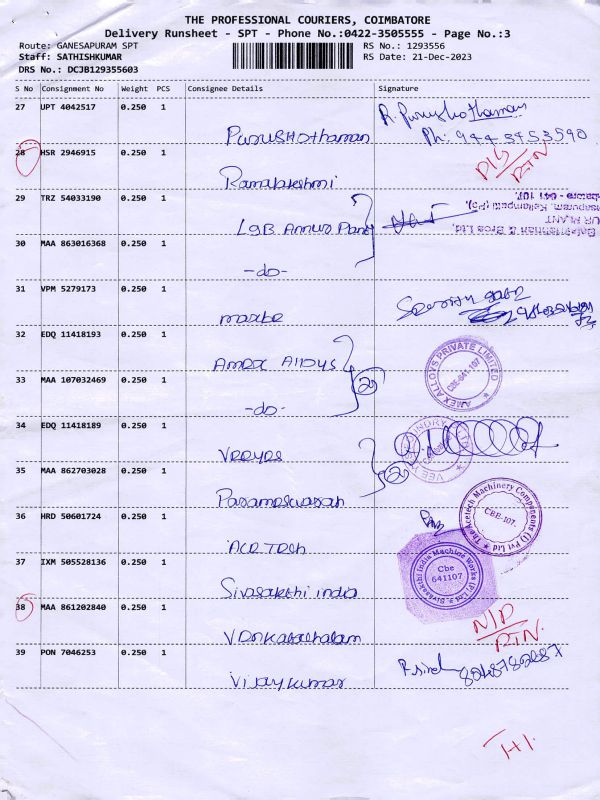 THE PROFESSIONAL COURIERS, COIMBATORE
Delivery Runsheet - SPT - Phone No.:0422-3505555 - Page No.:3
Route: GANESAPURAM SPT RS No.: 1293556
Staff: SATHISHKUMAR RS Date: 21-Dec-2023
DRS No.: DCJB129355603
S No Consignment No Weight PCS Consignee Details Signature
27 UPT 4042517 0.250 1
PurusHothaman R. Purushothaman
Ph: 9443453590
28 HSR 2946915 0.250 1
Ramalakshmi RTN
29 TRZ 54033190 0.250 1
LGB Annur
Balakrishnan & Bros Ltd.
30 MAA 863016368 0.250 1
-do-
31 VPM 5279173 0.250 1
32 EDQ 11418193 0.250 1
Amex Alloys
AMEX ALLOYS PRIVATE LIMITED
CBE-641 107
33 MAA 107032469 0.250 1
-do- 2
34 EDQ 11418189 0.250 1
Veeyes
35 MAA 862703028 0.250 1
Parameswaran 2
36 HRD 50601724 0.250 1
Ace Tech
The Acetech Machinery Components (I) Pvt Ltd
CBE-107.
37 IXM 505528136 0.250 1
Sivasakthi india
Sivasakthi India Machine Works (P) Ltd
Cbe
641107
38 MAA 861202840 0.250 1
Venkatachalam N/D
RTN.
39 PON 7046253 0.250 1
Vijaykumar